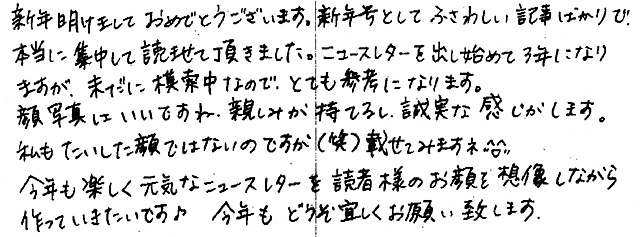 新年明けまして おめでとうございます。新年号として ふさわしい 記事ばかりで、
本当に 集中して 読ませて頂きました。ニュースレターを出し始めて 3年になり
ますが、未だに 模索中なので、とても 参考に なります。
顔写真は いいですね。親しみが 持てるし、誠実な 感じがします。
私も たいした顔ではないのですが (笑) 載せてみますネ。
今年も 楽しく 元気なニュースレターを 読者様のお顔を 想像しながら
作っていきたいです♪ 今年も どうぞ宜しくお願い致します。